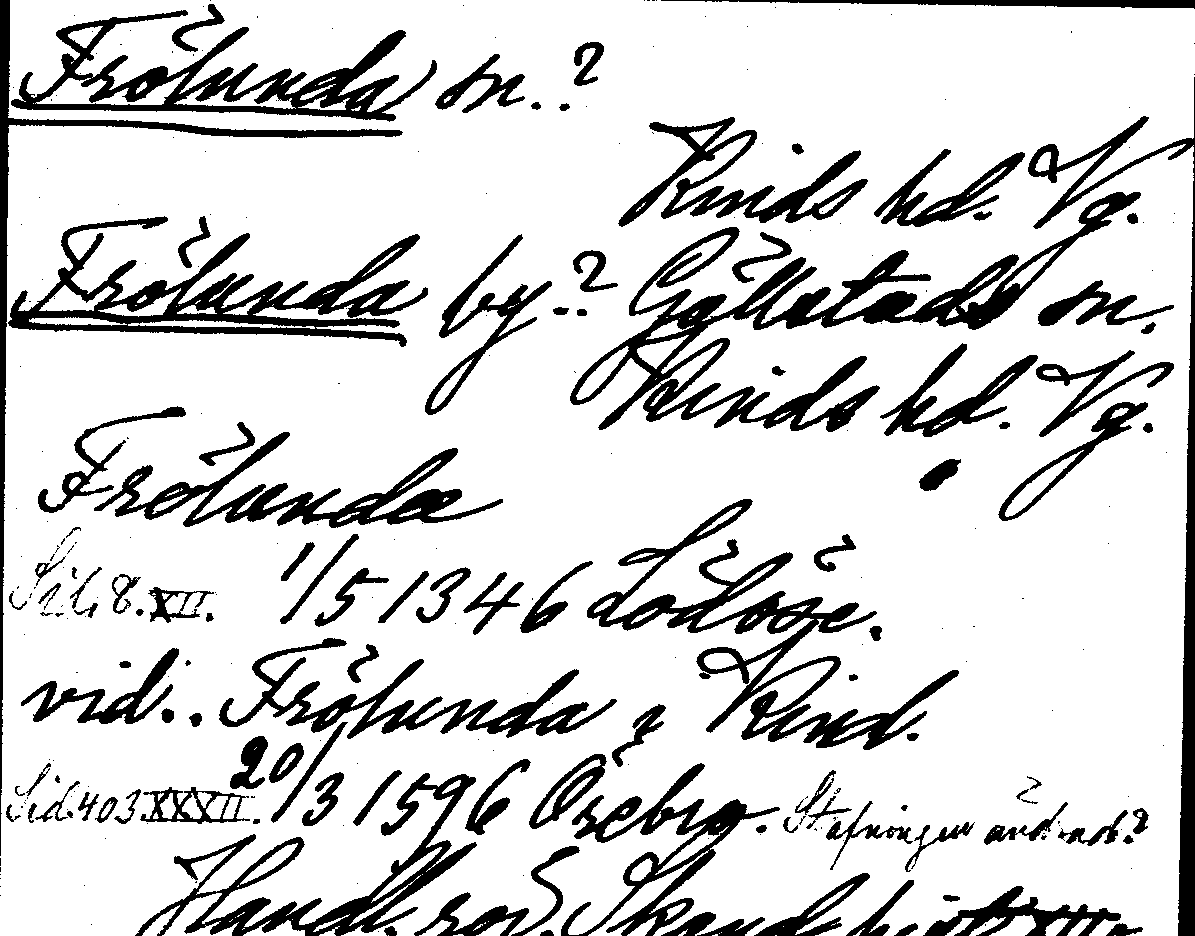 Frölunda sn..?
Kinds hd. Vg.
Frölunda by..? Gällstads sn.
Kinds hd. Vg.
Frölunda
Sid. 8. XII. 1/5 1346 Lödöse.
vid.. Frölunda i Kind.
Sid. 403 XXXII. 20/3 1596 Örebro. Stafningen ändrad?
Handl. rör. Skand. hist. XII.